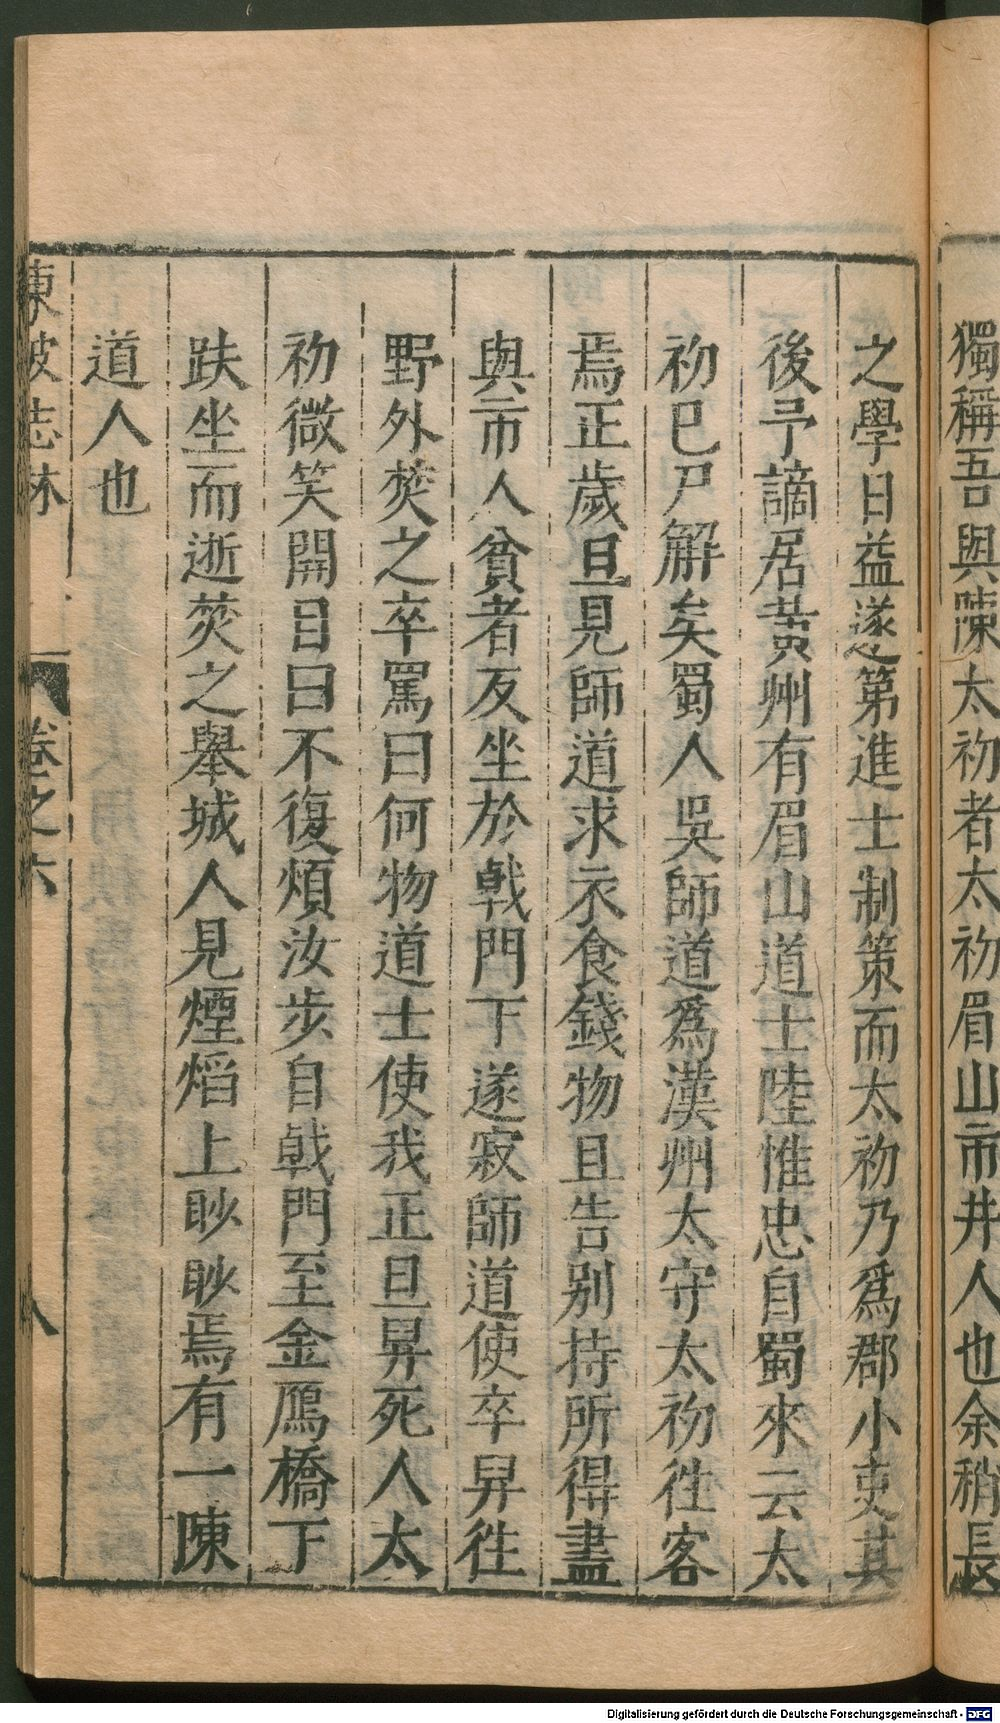 獨稱吾與陳太初者太初眉山市井人也余稍長
之學日益遂第進士制策而太初乃爲郡小吏其
後予謫居黄州有眉山道士陸惟忠自蜀來云太
初已尸解矣蜀人吳師道爲漢州太守太初徃客
焉正歲旦見師道求衣食錢物且告别持所得盡
與市人貧者反坐於戟門下遂寂師道使卒舁徃
野外焚之卒罵曰何物道士使我正旦舁死人太
初微笑開目曰不復煩汝步自戟門至金鴈橋下
趺坐而逝焚之舉城人見煙焰上眇眇焉有一陳
道人也
東坡志林 卷之六 八
Digitalisierung gefördert durch die Deutsche Forschungsgemeinschaft - DFG